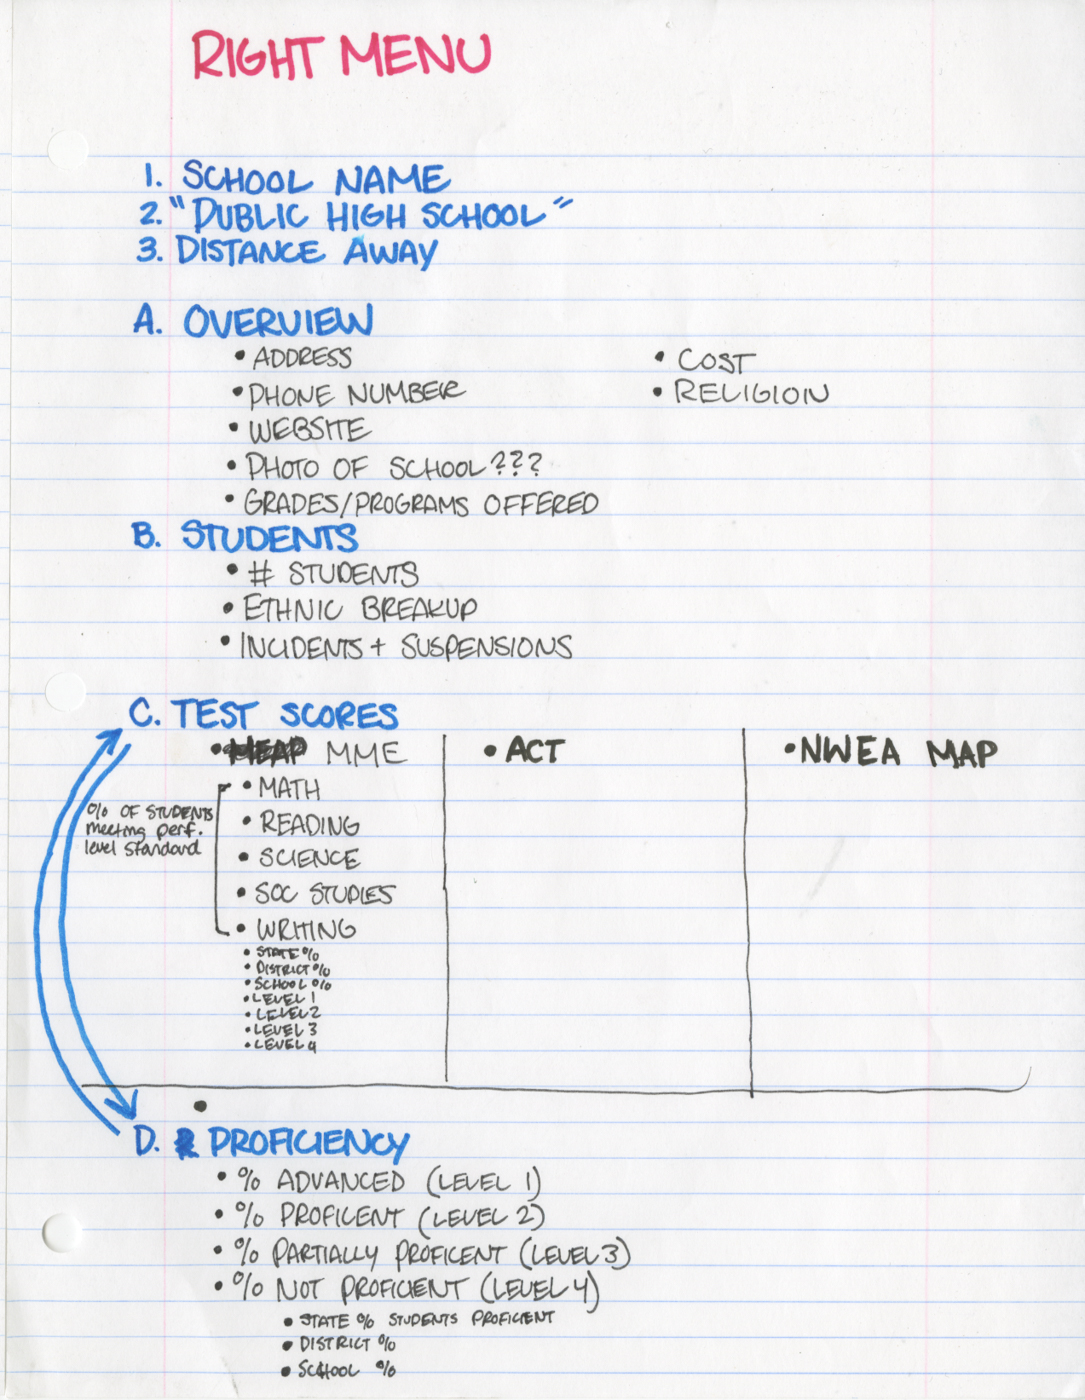 RIGHT MENU
1. SCHOOL NAME
2. "PUBLIC HIGH SCHOOL"
3. DISTANCE AWAY
A. OVERVIEW
• ADDRESS
• PHONE NUMBER
• WEBSITE
• PHOTO OF SCHOOL???
• GRADES/PROGRAMS OFFERED
• COST
• RELIGION
B. STUDENTS
• # STUDENTS
• ETHNIC BREAKUP
• INCIDENTS + SUSPENSIONS
C. TEST SCORES
• MEAP MME
% OF STUDENTS
meeting perf.
level standard
• MATH
• READING
• SCIENCE
• SOC STUDIES
• WRITING
• STATE %
• DISTRICT %
• SCHOOL %
• LEVEL 1
• LEVEL 2
• LEVEL 3
• LEVEL 4
• ACT
• NWEA MAP
•
D. PROFICIENCY
• % ADVANCED (LEVEL 1)
• % PROFICENT (LEVEL 2)
• % PARTIALLY PROFICENT (LEVEL 3)
• % NOT PROFICIENT (LEVEL 4)
• STATE % STUDENTS PROFICIENT
• DISTRICT %
• SCHOOL %